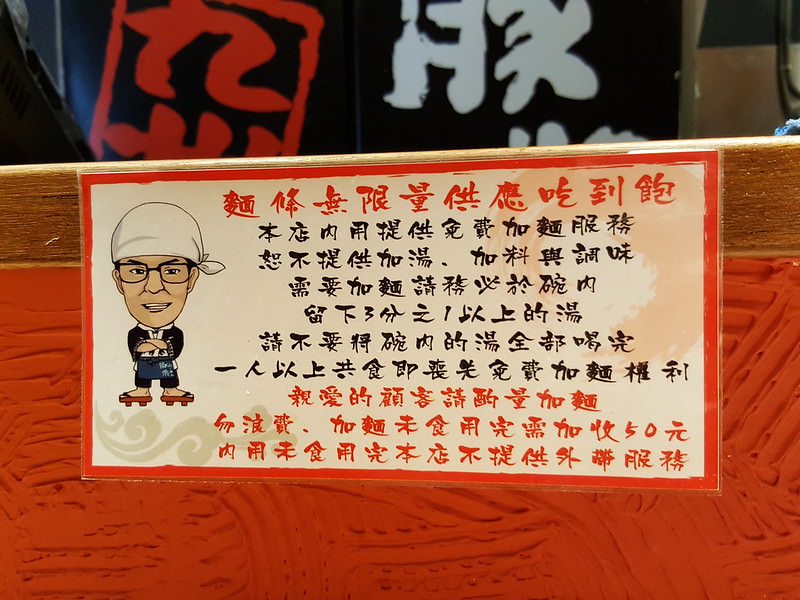 九州
豚
麵條無限量供應吃到飽
本店內用提供免費加麵服務
恕不提供加湯、加料與調味
需要加麵請務必於碗內
留下3分之1以上的湯
請不要將碗內的湯全部喝完
一人以上共食即喪失免費加麵權利
親愛的顧客請酌量加麵
勿浪費、加麵未食用完需加收50元
內用未食用完本店不提供外帶服務